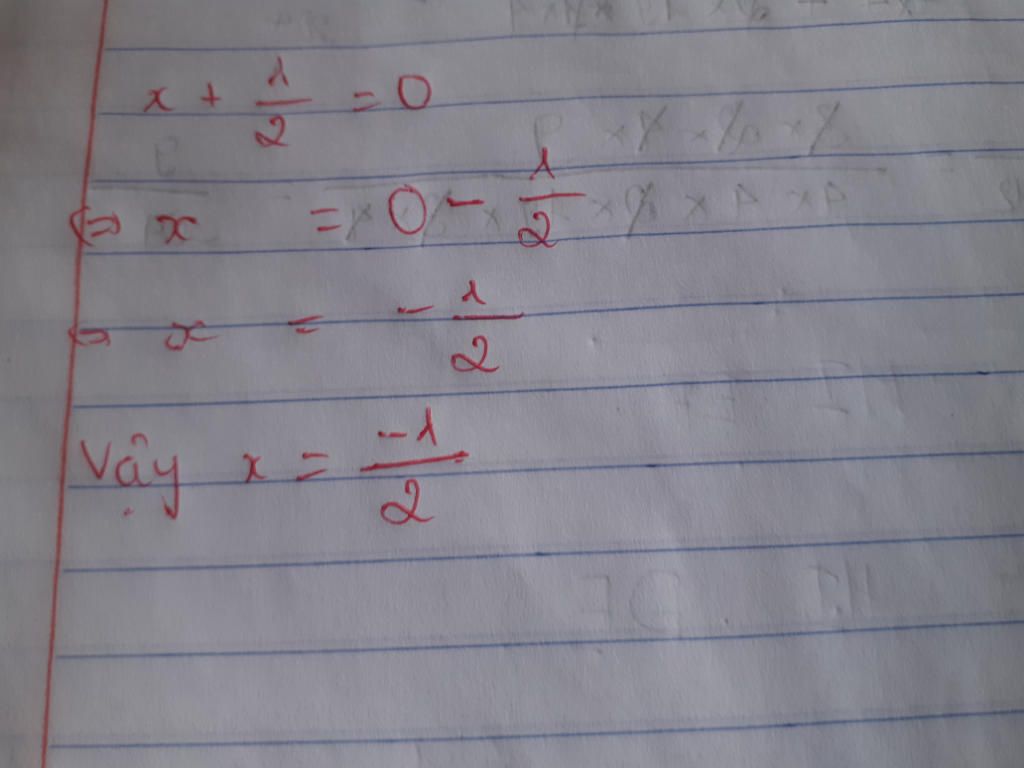 x + 1/2 = 0
⇔ x = 0 - 1/2
⇔ x = - 1/2
Vậy x = -1/2